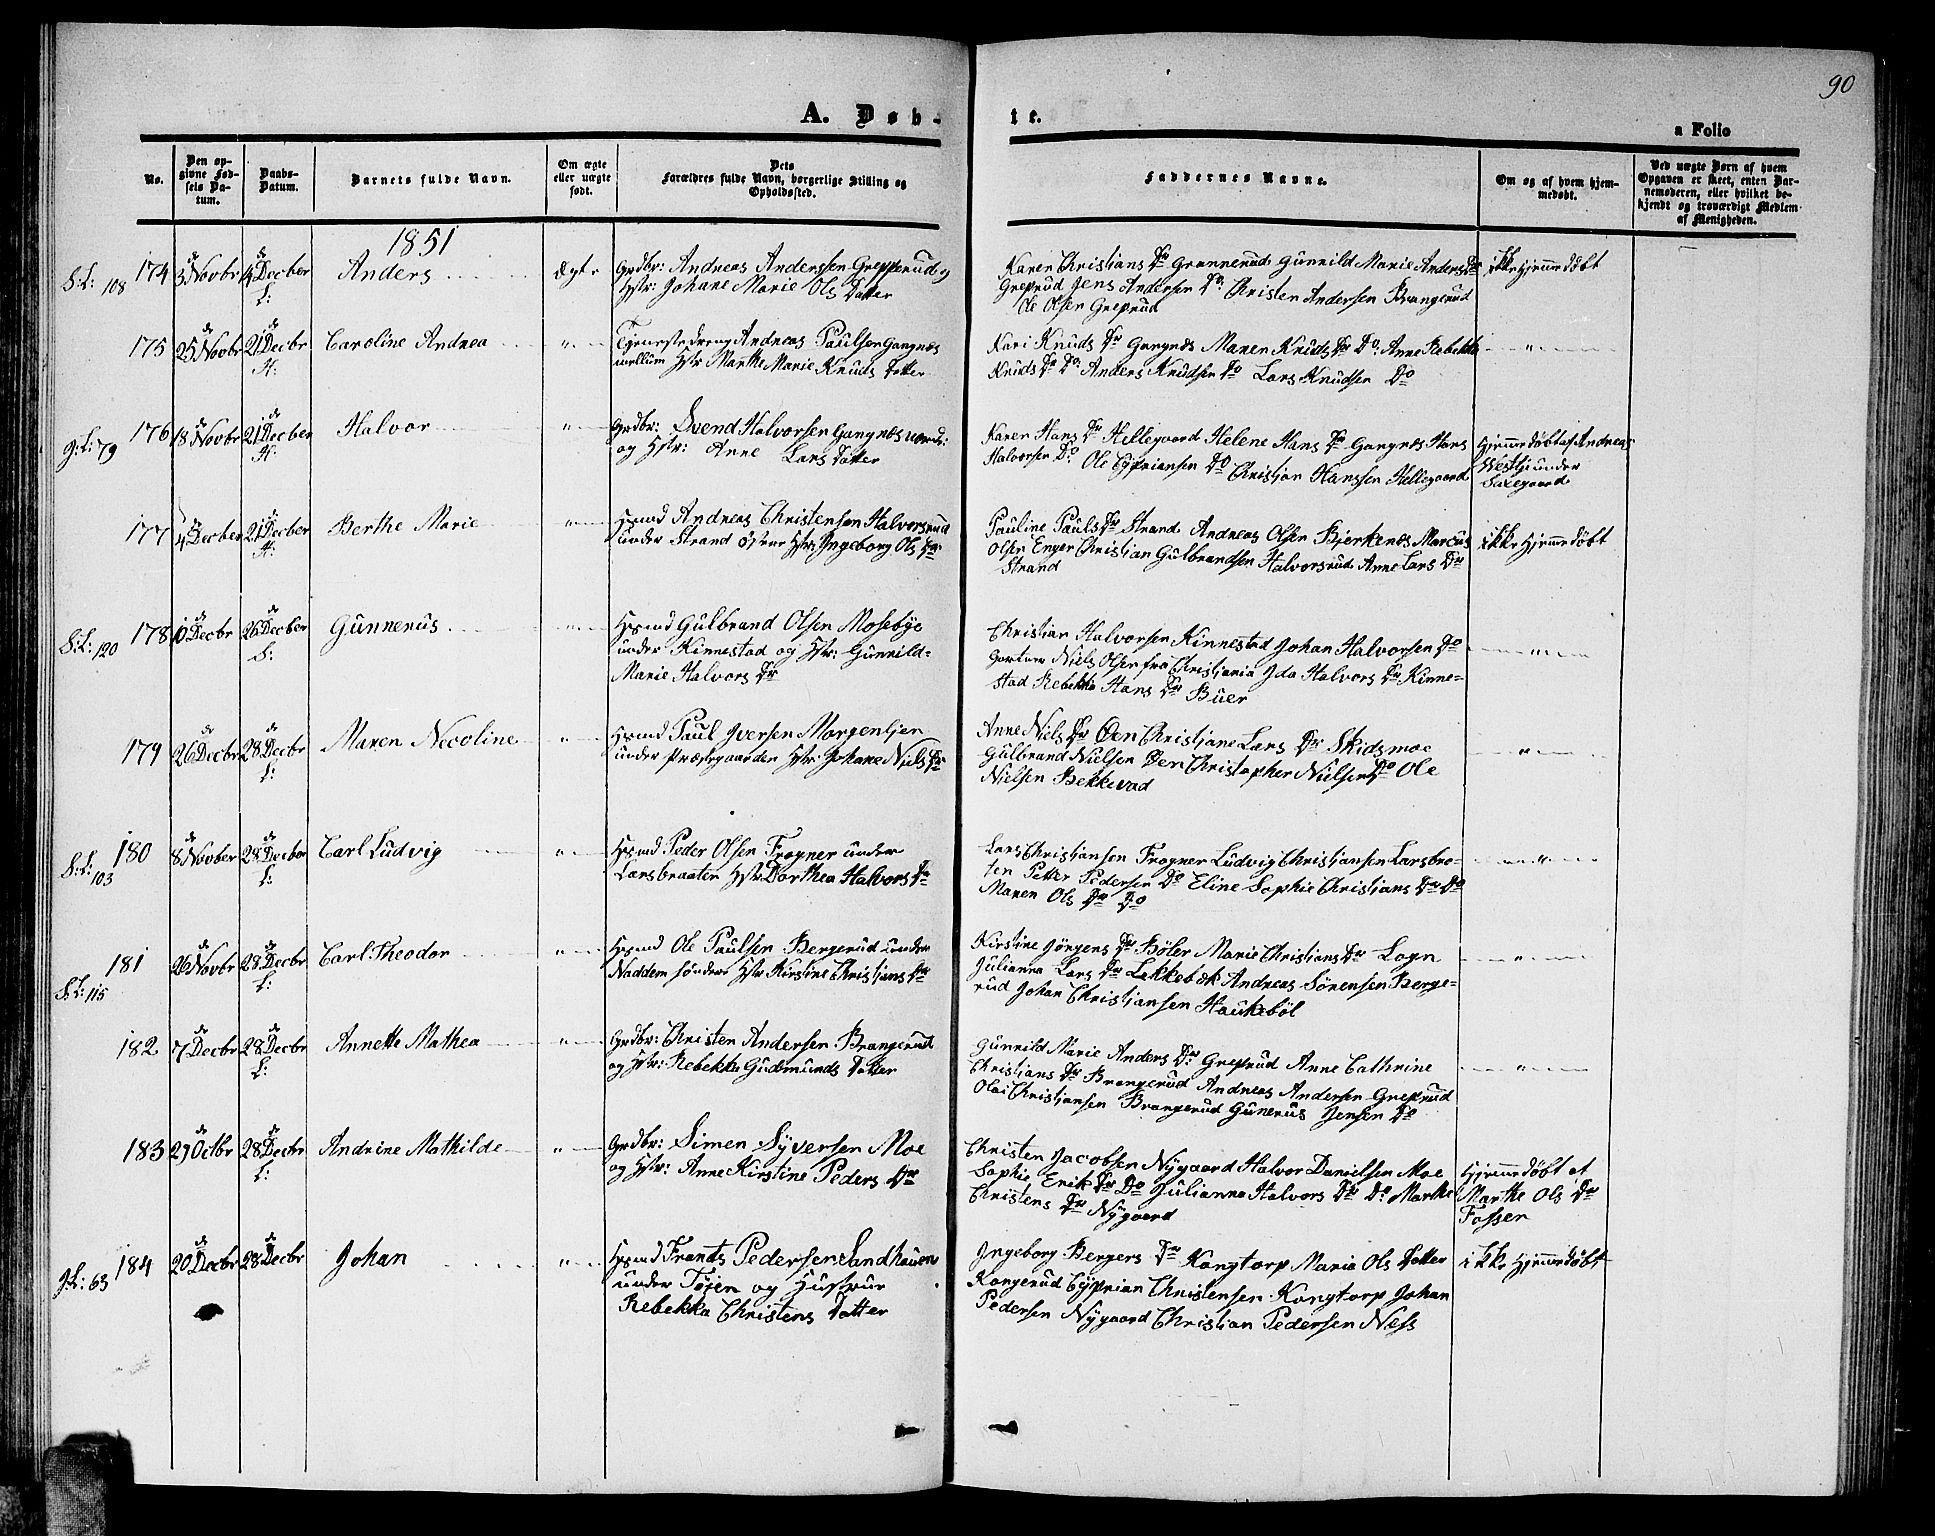 90
A. Døb-
te.
a Folio
No.
Den op-
givne Fød-
sels Da-
tum.
Daabs-
Datum.
Barnets fulde Navn.
Om ægte
eller uægte
født.
Dets
Forældres fulde Navn, borgerlige Stilling og
Opholdssted.
Faddernes Navne.
Om og af hvem hjem-
medøbt.
Ved uægte Børn af hvem
Opgaven er skeet, enten Bar-
nemoderen, eller hvilket be-
kjendt og troværdigt Medlem
af Menigheden.
1851
S:L: 108
174 Novbr Decber Anders Ægte Grdbr: Andreas Anderssen Grepperud og
Hstr: Johane Marie Ols Datter
Karen Christians Dtr Grannerud Gunnild Marie Anders Dtr
Greprud Jens Andersen Do: Christen Andersen Brangerud
Ole Olsen Greprud
ikke Hjemmedøbt
175 25 Novbr 21 Decbr Caroline Andrea " Tjenestedreng Andreas Paulsen Gangnæs
mellum Hstr Marthe Marie Knuds Datter
Kari Knuds Dtr Gangnæs Maren Knuds Dtr Do: Anne Rebekka
Knuds Dtr Do: Anders Knudsen Do Lars Knudsen Do
"
g:L: 79
176 18 Novbr 21 Decber Halvor " Grdbr: Svend Halvorsen Gangnæs
og Hstr: Anne Lars Datter
Karen Hans Dtr Hellegaard Helene Hans Dtr Gangnæs Hans
Halvorsen Do: Ole Cyprianssen Do Christian Hanssen Hellegaard
Hjemmedøbt af Andreas
under
Saxegaard
177 4 Decber 21 Decber Berthe Marie " Hsmd Andreas Christensen Halvorsrud
under Strand Hstr: Ingeborg Ols Dtr
Pauline Pauls Dtr Strand Andreas Olsen Bjerkenæs Marcus
Olsen Enger Christian Gulbrandsen Halvorsrud Anne Lars Dtr
Strand
ikke Hjemmedøbt
S:L: 120
178 10 Decbr 26 Decber Gunnerus " Hsmd Gulbrand Olsen Mosebye
under Kinnestad og Hstr: Gunnild-
Marie Halvors Dtr
Christian Halvorsen Kinnestad Johan Halvorsen Do
Gartner Niels Olsen fra Christiania Ida Halvors Dtr Kinne=
stad Rebekka Hans Dtr Buer
"
179 26 Decbr 28 Decbr Maren Necoline " Hsmd Paul Iversen Morgentjen
under Præstegaarden Hstr: Johane Niels Dtr
Anne Niels Dtr Øen Christiane Lars Dtr Skidsmoe
Gulbrand Nielsen Øen Christopher Nielsen Do Ole
Nielsen Bekkevad
"
S:L: 103
180 8 Novber 28 Decbr Carl Ludvig " Hsmd Peder Olsen Frogner under
Larsbraaten Hstr: Dorthea Halvors Dtr
Lars Christjansen Frogner Ludvig Christjansen Larsbro-
ten Petter Pedersen Do Eline Sophie Christians Dtr Do
Maren Ols Dtr Do
"
S:L: 115
181 26 Novbr 28 Decbr Carl Theodor " Hsmd Ole Paulsen Bergerud under
Naddem søndere Hstr Kirstine Christjans Dtr
Kirstine Jørgens Dtr Bøler Marie Christians Dtr Logn
Julianna Lars Dtr Lekkebek Andreas Sørensen Berge=
rud Johan Christjansen Haukebøl
"
182 7 Decbr 28 Decbr Annette Mathea " Grdbr: Christen Andersen Brangerud
og Hstr: Rebekka Gudmunds Datter
Gunnild Marie Anders Dtr: Greprud Anne Cathrine
Christians Dtr Brangerud Andreas Andersen Greprud
Olai Christjansen Brangerud Gunerus Jensen Do
"
183 29 Octbr 28 Decbr Andrine Mathilde " Grdbr: Simen Syversen Moe
og Hstr: Anne Kirstine Peders Dtr
Christen Jacobsen Nygaard Halvor Danielsen Moe
Sophie Erik Dtr Do Julianna Halvors Dtr Do Marthe
Christens Dtr Nygaard
Hjemmedøbt af
Marthe Ols Dtr
Fossen
g:L: 63
184 20 Decbr 28 Decbr Johan " Hsmd Frants Pedersen Sandhauen
under Tøien og Hustrue
Rebekka Christens Datter
Ingeborg Bergers Dtr Kongtorp Maria Ols Datter
Kongerud Cyprian Christensen Kongtorp Johan
Pedersen Nygaard Christian Pedersen Ness
ikke Hjemmedøbt